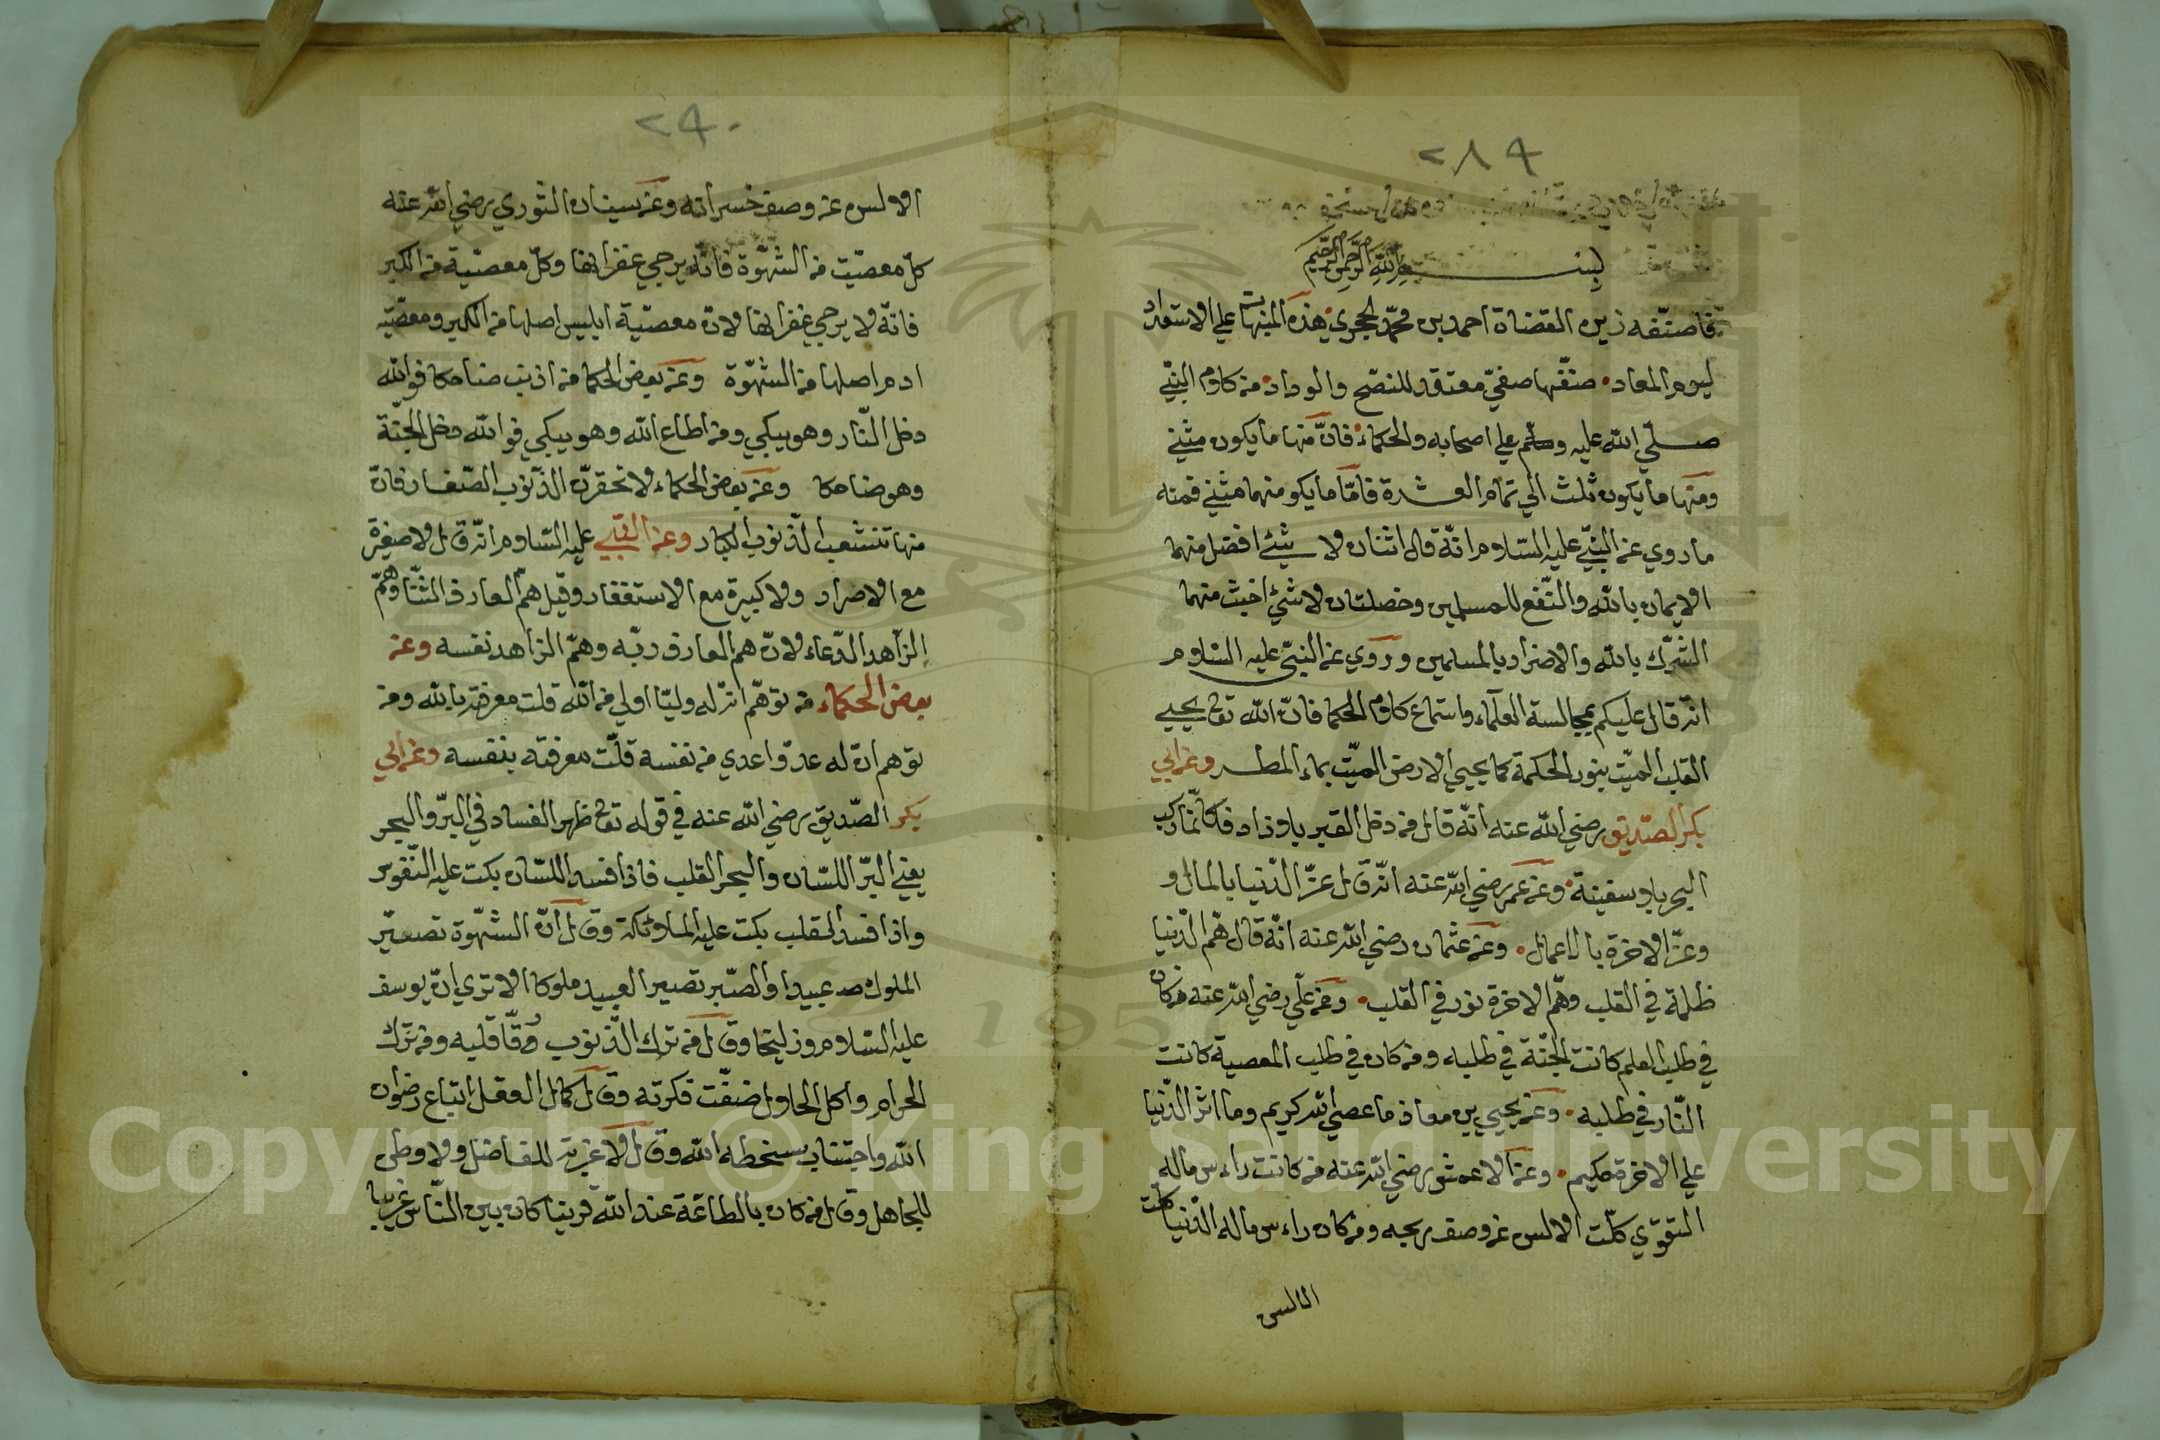 ٢٨٩
بسم الله الرحمن الرحيم
فاصنفه زين القضاة احمد بن محمد الحجري هذه المنبهات علي الاستعداد
ليوم المعاد صنفها صفي معتقد للنصح والوداد من كلام النبي
صلي الله عليه وسلم علي اصحابه والحكماء فان منها ما يكون مثني
ومنها ما يكون ثلث الي تمام العشرة فاما ما يكو منها مثني فمنه
ما روي عن النبي عليه السلام انه قال اثنان لا شيئ افضل منهما
الايمان بالله والنفع للمسلمين وخصلتان لا شئ اخبث منهما
الشرك بالله والاضرار بالمسلمين وروي عن النبي عليه السلام
انه قال عليكم بمجالسة العلماء واستماع كلام الحكما فان الله تعا يحيي
القلب الميت بنور الحكمة كما يحيي الارض الميت بماء المطر وعن ابي
بكر الصديق رضي الله عنه انه قال من دخل القبر بلا زاد فكانما ركب
البحر بلا سفينة وعن عمر رضي الله عنه انه قال عز الدنيا بالمال و
وعز الاخرة بالاعمال وعن عثمان رضي الله عنه انه قال هم الدنيا
ظلمة في القلب وهم الاخرة نور في القلب وعن علي رضي الله عنه من كان
في طلب العلم كانت الجنة في طلبه ومن كان في طلب المعصية كانت
النار في طلبه وعن يحيي بن معاذ ما عصي الله كريم وما اثر الدنيا
علي الاخرة حكيم وعن الاعمش رضي الله عنه من كانت راءس ماله
التقوي كلت الالسن عن وصف ربحه ومن كان راءس ماله الدنيا كلت
الالسن
٢٩٠
الالسن عن وصف خسرانه وعن سفيان الثوري رضي الله عنه
كل معصيت من الشهوة فانه يرجي غفرانها وكل معصية من الكبر
فانه لا يرجي غفرانها لان معصية ابليس اصلها من الكبر ومعصيه
ادم اصلها من الشهوة وعن بعض الحكما من اذنب ضاحكا فوالله
دخل النار وهو يبكي ومن اطاع الله وهو يبكي فوالله دخل الجنة
وهو ضاحكا وعن بعض الحكماء لا تحقرن الذنوب الصغار فان
منها تتشعب الذنوب الكبار وعن النبي عليه السلام انه قال لا صغيرة
مع الاصرار ولا كبيرة مع الاستغفار وقيل هم العارف الثنا وهم
الزاهد الدعاء لان هم العارف ربه وهم الزاهد نفسه وعن
بعض الحكماء من توهم ان له وليا اولي من الله قلت معرفته بالله ومن
توهم ان له عدوا عدي من نفسه قلت معرفته بنفسه وعن ابي
بكر الصديق رضي الله عنه في قوله تعا ظهر الفساد في البر والبحر
يعني البر اللسان والبحر القلب فاذا فسد اللسان بكت عليه النفوس
واذا فسد القلب بكت عليه الملائكة وقال ان الشهوة تصير
الملوك عبيدا والصبر تصير العبيد ملوكا الا تري ان يوسف
عليه السلام وزليخا وقال من ترك الذنوب رق قلبه ومن ترك
الحرام واكل الحلال ضفت فكرته وقال كمال العقل اتباع رضوان
الله واجتناب سخطه الله وقال لا غربة للفاضل ولا وطن
للجاهل وقال من كان بالطاعة عند الله قريبا كان بين الناس غريبا
Copyright © King Saud University
1957